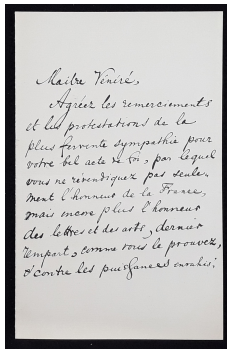 Maître Vénéré,
Agréez les remerciements
et les protestations de la
plus fervente sympathie pour
votre bel acte de foi, par lequel
vous ne revendiquez pas seule-
ment l'honneur de la France,
mais encore plus l'honneur
des lettres et des arts, dernier
rempart, comme vous le prouvez,
contre les puissances envahis-